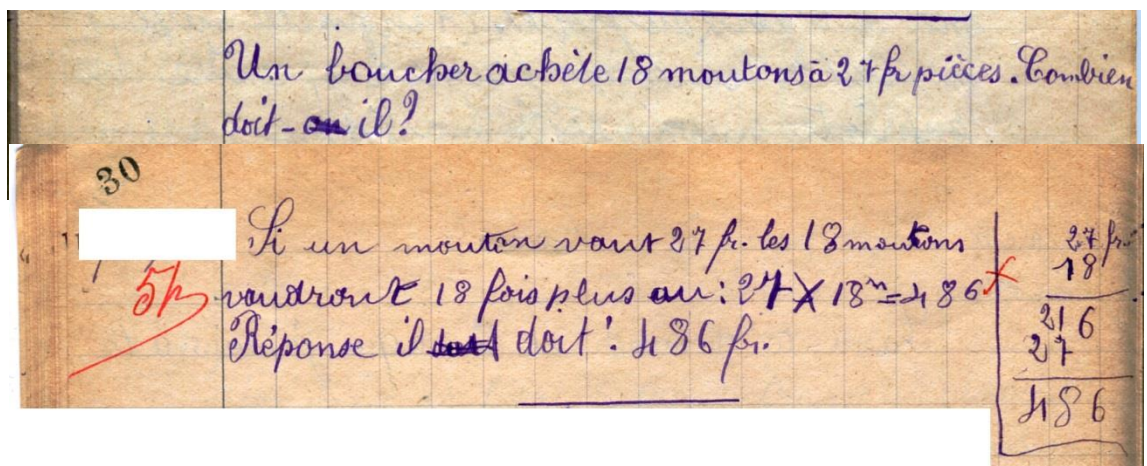 Un boucher achète 18 moutons à 27 fr pièces. Combien
doit-on il?
30
Si un mouton vaut 27 fr. les 18 moutons
vaudront 18 fois plus ou : 27 X 18 m = 486
Réponse il doit : 486 fr.
5p
27 fr.
18
216
27
486